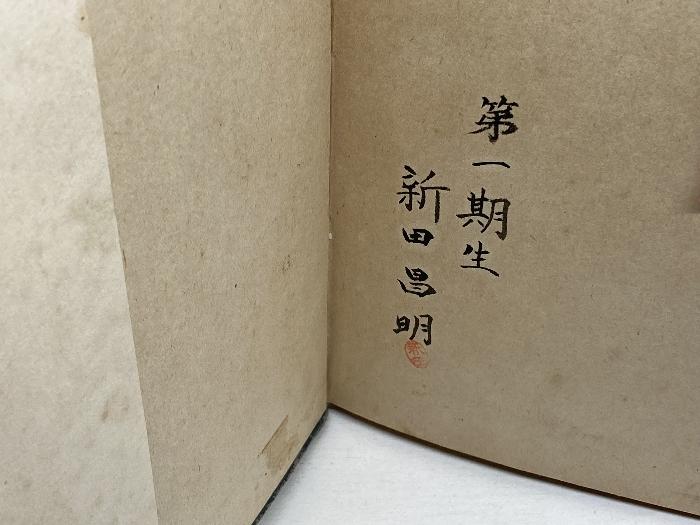 第一期生
新田昌明